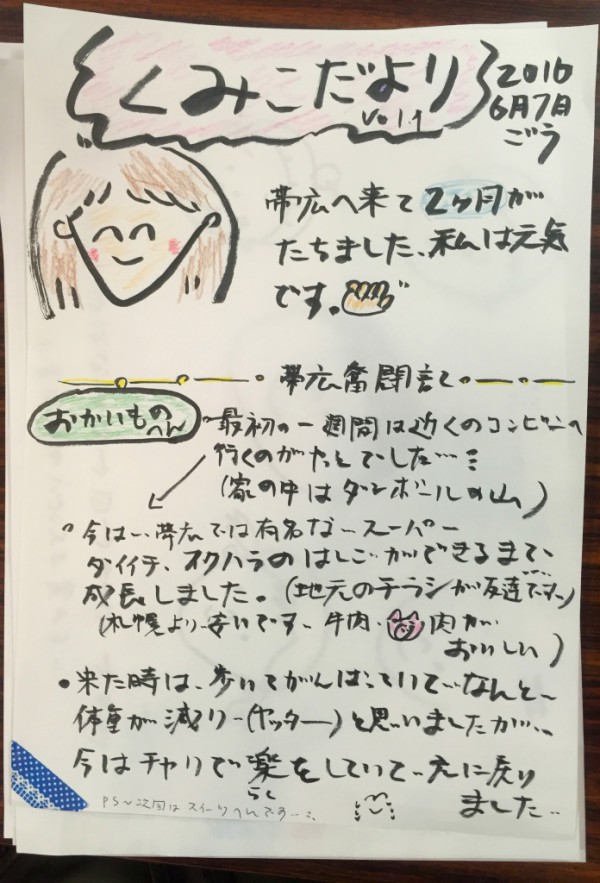 くみこだより
Vol.1
2016
6月7日
ごう
帯広へ来て2ヶ月が
たちました、私は元気
です。
帯広奮闘記
おかいものへん
最初の一週間は近くのコンビニへ
行くのがやっとでした…
(家の中はダンボールの山)
今は…帯広では有名なスーパー
ダイイチ、フクハラのはしごができるまで、
成長しました。(地元のチラシが友達です〜)
(札幌より安いです、牛肉・肉が
おいしい)
来た時は、歩いてがんばっていて…なんと〜
体重が減り〜(ヤッター)と思いましたが…
今はチャリで楽をしていて…元に戻り
らく
ました…
PS〜次回はスイーツへんです…